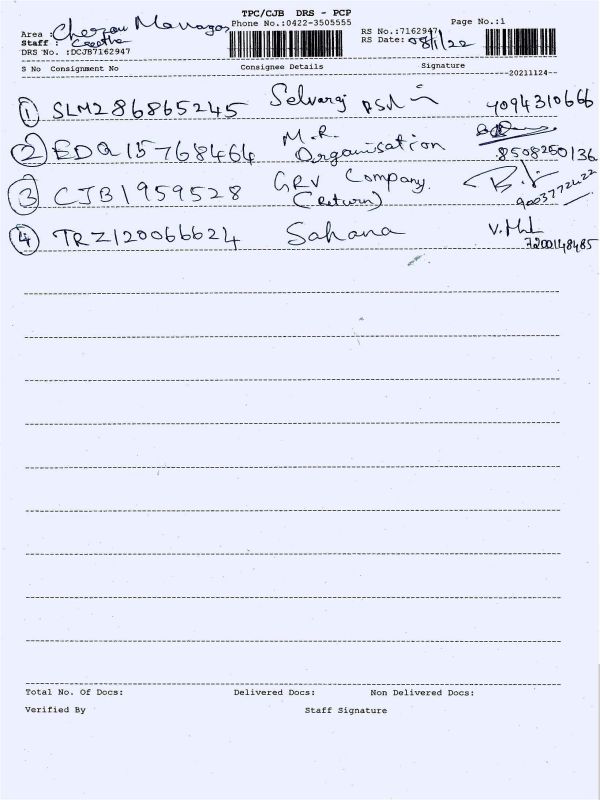 TPC/CJB DRS - PCP
Area : Cheran Managar Phone No.:0422-3505555 Page No.:1
Staff : Geetha RS No.:7162947
DRS No. :DCJB7162947 RS Date: 08/11/22
S No Consignment No Consignee Details Signature
--20211124--
1 SLM286865245 Selvaraj 4094310666
2 EDQ15768464 M.R. Organisation 8508250136
3 CJB1959528 GRV Company. (Return) 9003772422
4 TRZ120066624 Sahana 7200148485
Total No. Of Docs: Delivered Docs: Non Delivered Docs:
Verified By Staff Signature